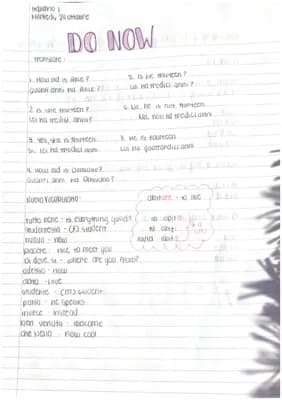 Italiano 1
Martedì, 24 ottobre
DO NOW
Translate:
1. How old is Alice? 5. Is he thirteen?
Quanti anni ha Alice? Lui ha tredici anni?
2. Is she thirteen? 6. No, he is not thirteen
Lei ha tredici anni? No, non ha tredici anni
3. Yes, she is thirteen 7. He is fourteen
Si, lei ha tredici anni Lui ha quattordici anni
4. How old is
Quanti anni ha
Nuovo Vocabolario: abitare - to live
tutto bene - is everything good? io abito
studentessa - (f) student tu abiti
nuova - new lui/lei abita
piacere - nice to meet you
di dove sei - where are you from?
adesso - now
abito - I live
studente - (m) student
parla - he speaks
invece - instead
ben venuto - welcome
che bello - how cool